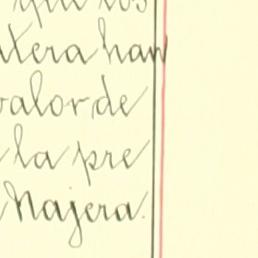 que los
tera han
valor de
la pre
Najera.